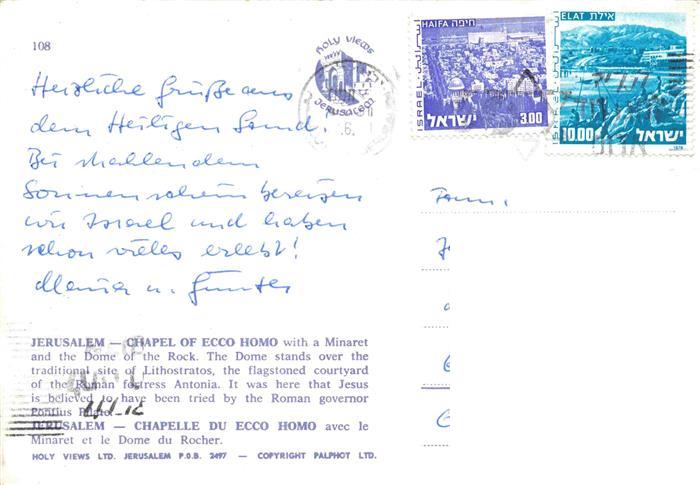 108
HOLY VIEWS
JERUSALEM
HAIFA חיפה
ISRAEL
ישראל
3.00
ELAT אילת
ISRAEL
ישראל
10.00
Herzliche Grüße aus
dem Heiligen Land.
Bei strahlendem
Sonnenschein bereisen
wir Israel und haben
schon vieles erlebt!
u. Günter
Fam.
JERUSALEM — CHAPEL OF ECCO HOMO with a Minaret
and the Dome of the Rock. The Dome stands over the
traditional site of Lithostratos, the flagstoned courtyard
of the Roman fortress Antonia. It was here that Jesus
is believed to have been tried by the Roman governor
Pontius Pilate.
JERUSALEM — CHAPELLE DU ECCO HOMO avec le
Minaret et le Dome du Rocher.
HOLY VIEWS LTD. JERUSALEM P.O.B. 2497 — COPYRIGHT PALPHOT LTD.